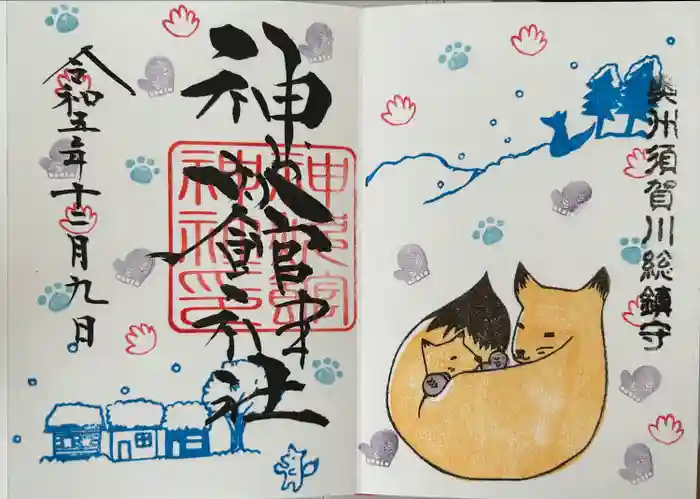 奥州須賀川総鎮守
神炊館神社
神炊館
神社印
令和五年十二月九日